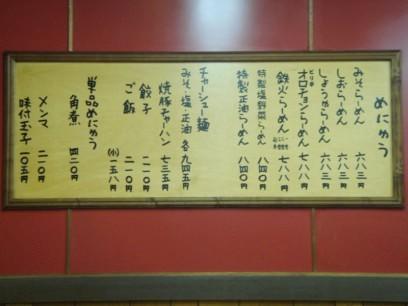 めにゅう
みそらーめん 六八三
しおらーめん 六八三
しょうゆらーめん 六八三
ピリ辛
オロチョンらーめん 七八八
鉄火らーめん 七八八
特製塩野菜らーめん 八四〇
特製正油らーめん 八四〇
チャーシュー麺
みそ・塩・正油 各九四五
焼豚チャーハン 七三五
餃子 二一〇
ご飯 二一〇
(小)一五八
単品めにゅう
角煮 四二〇
メンマ 二一〇
味付玉子 一〇五円